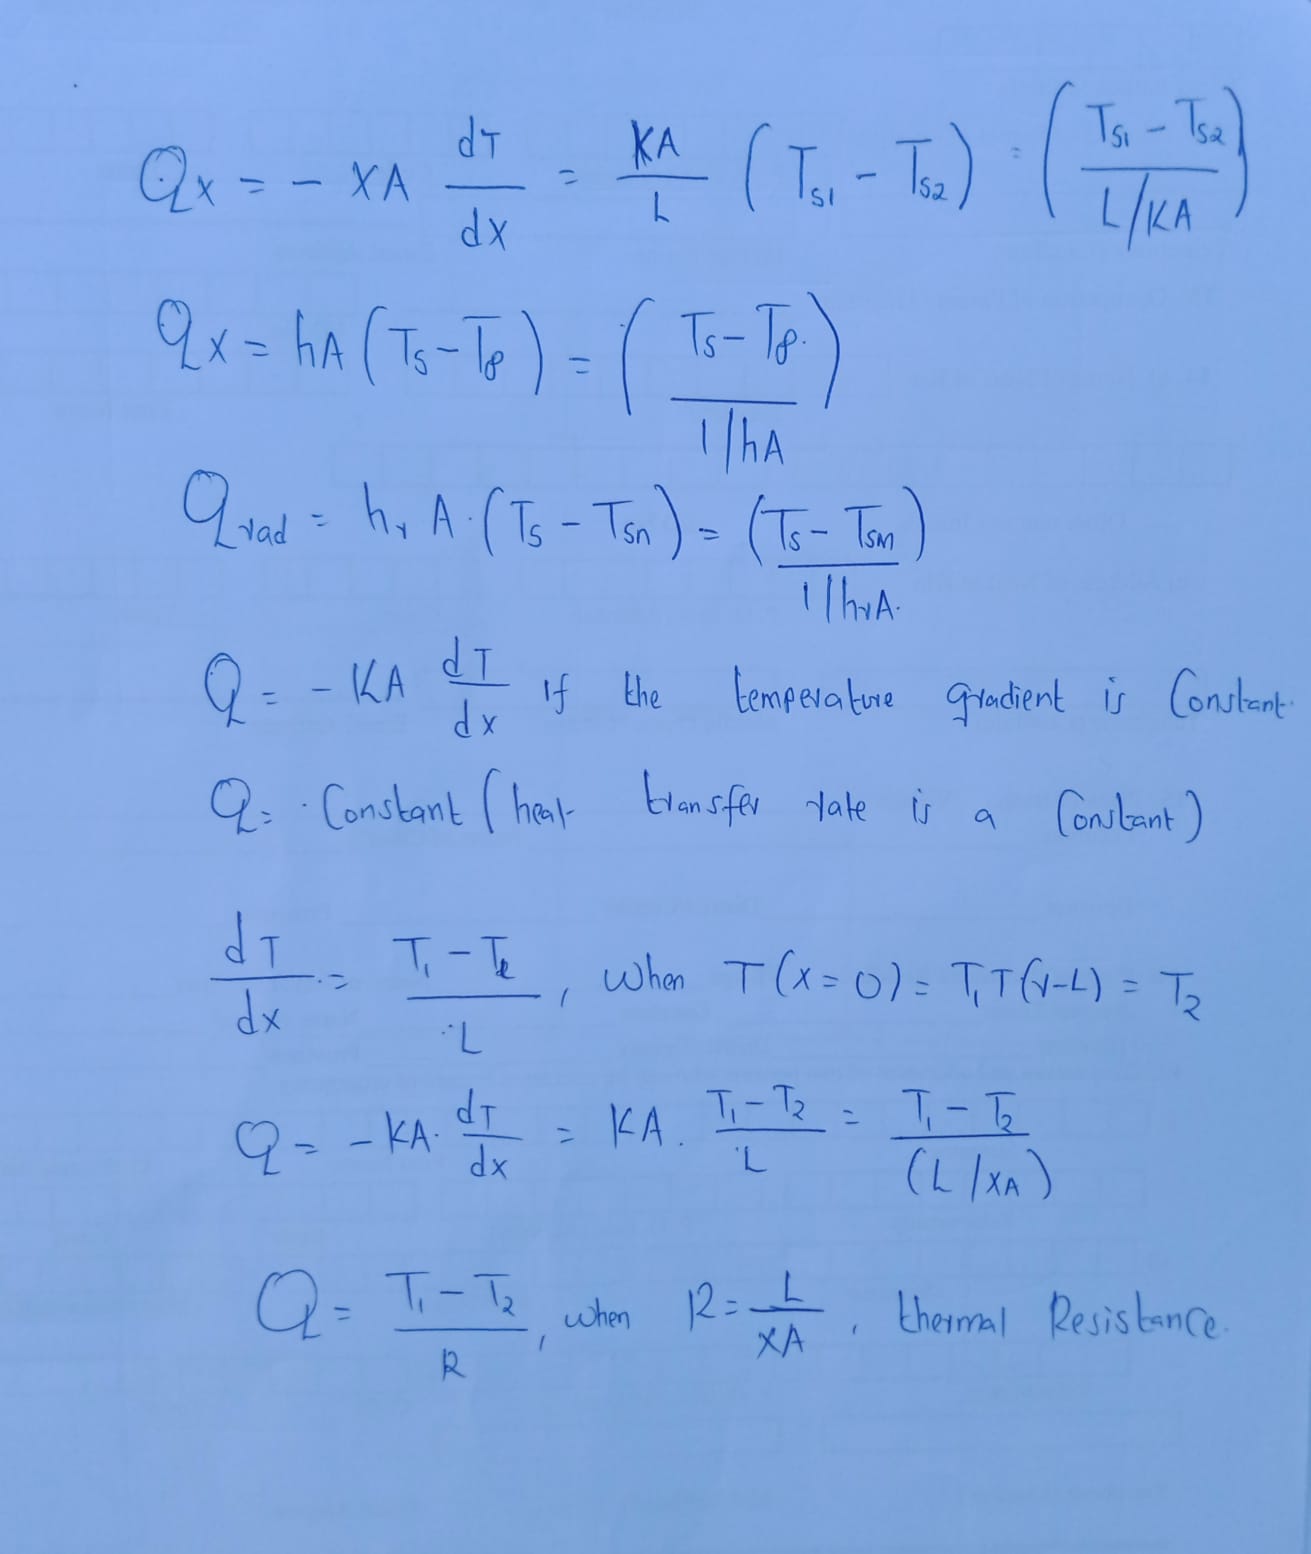 Qx = - XA dT/dx = KA/L (Ts1 - Ts2) = ((Ts1 - Ts2)/(L/KA))
Qx = hA (Ts - T∞) = ((Ts - T∞)/(1/hA))
Qrad = hr A. (Ts - Tsn) = ((Ts - Tsm)/(1/hrA.))
Q = - KA dT/dx If the temperature gradient is Constant.
Q = . Constant (heat transfer rate is a Constant)
dT/dx = (T1 - T2)/L, when T(x=0) = T1 T(x-L) = T2
Q = - KA. dT/dx = KA. (T1 - T2)/L = (T1 - T2)/(L/XA)
Q = (T1 - T2)/R, when R = L/XA, thermal Resistance.